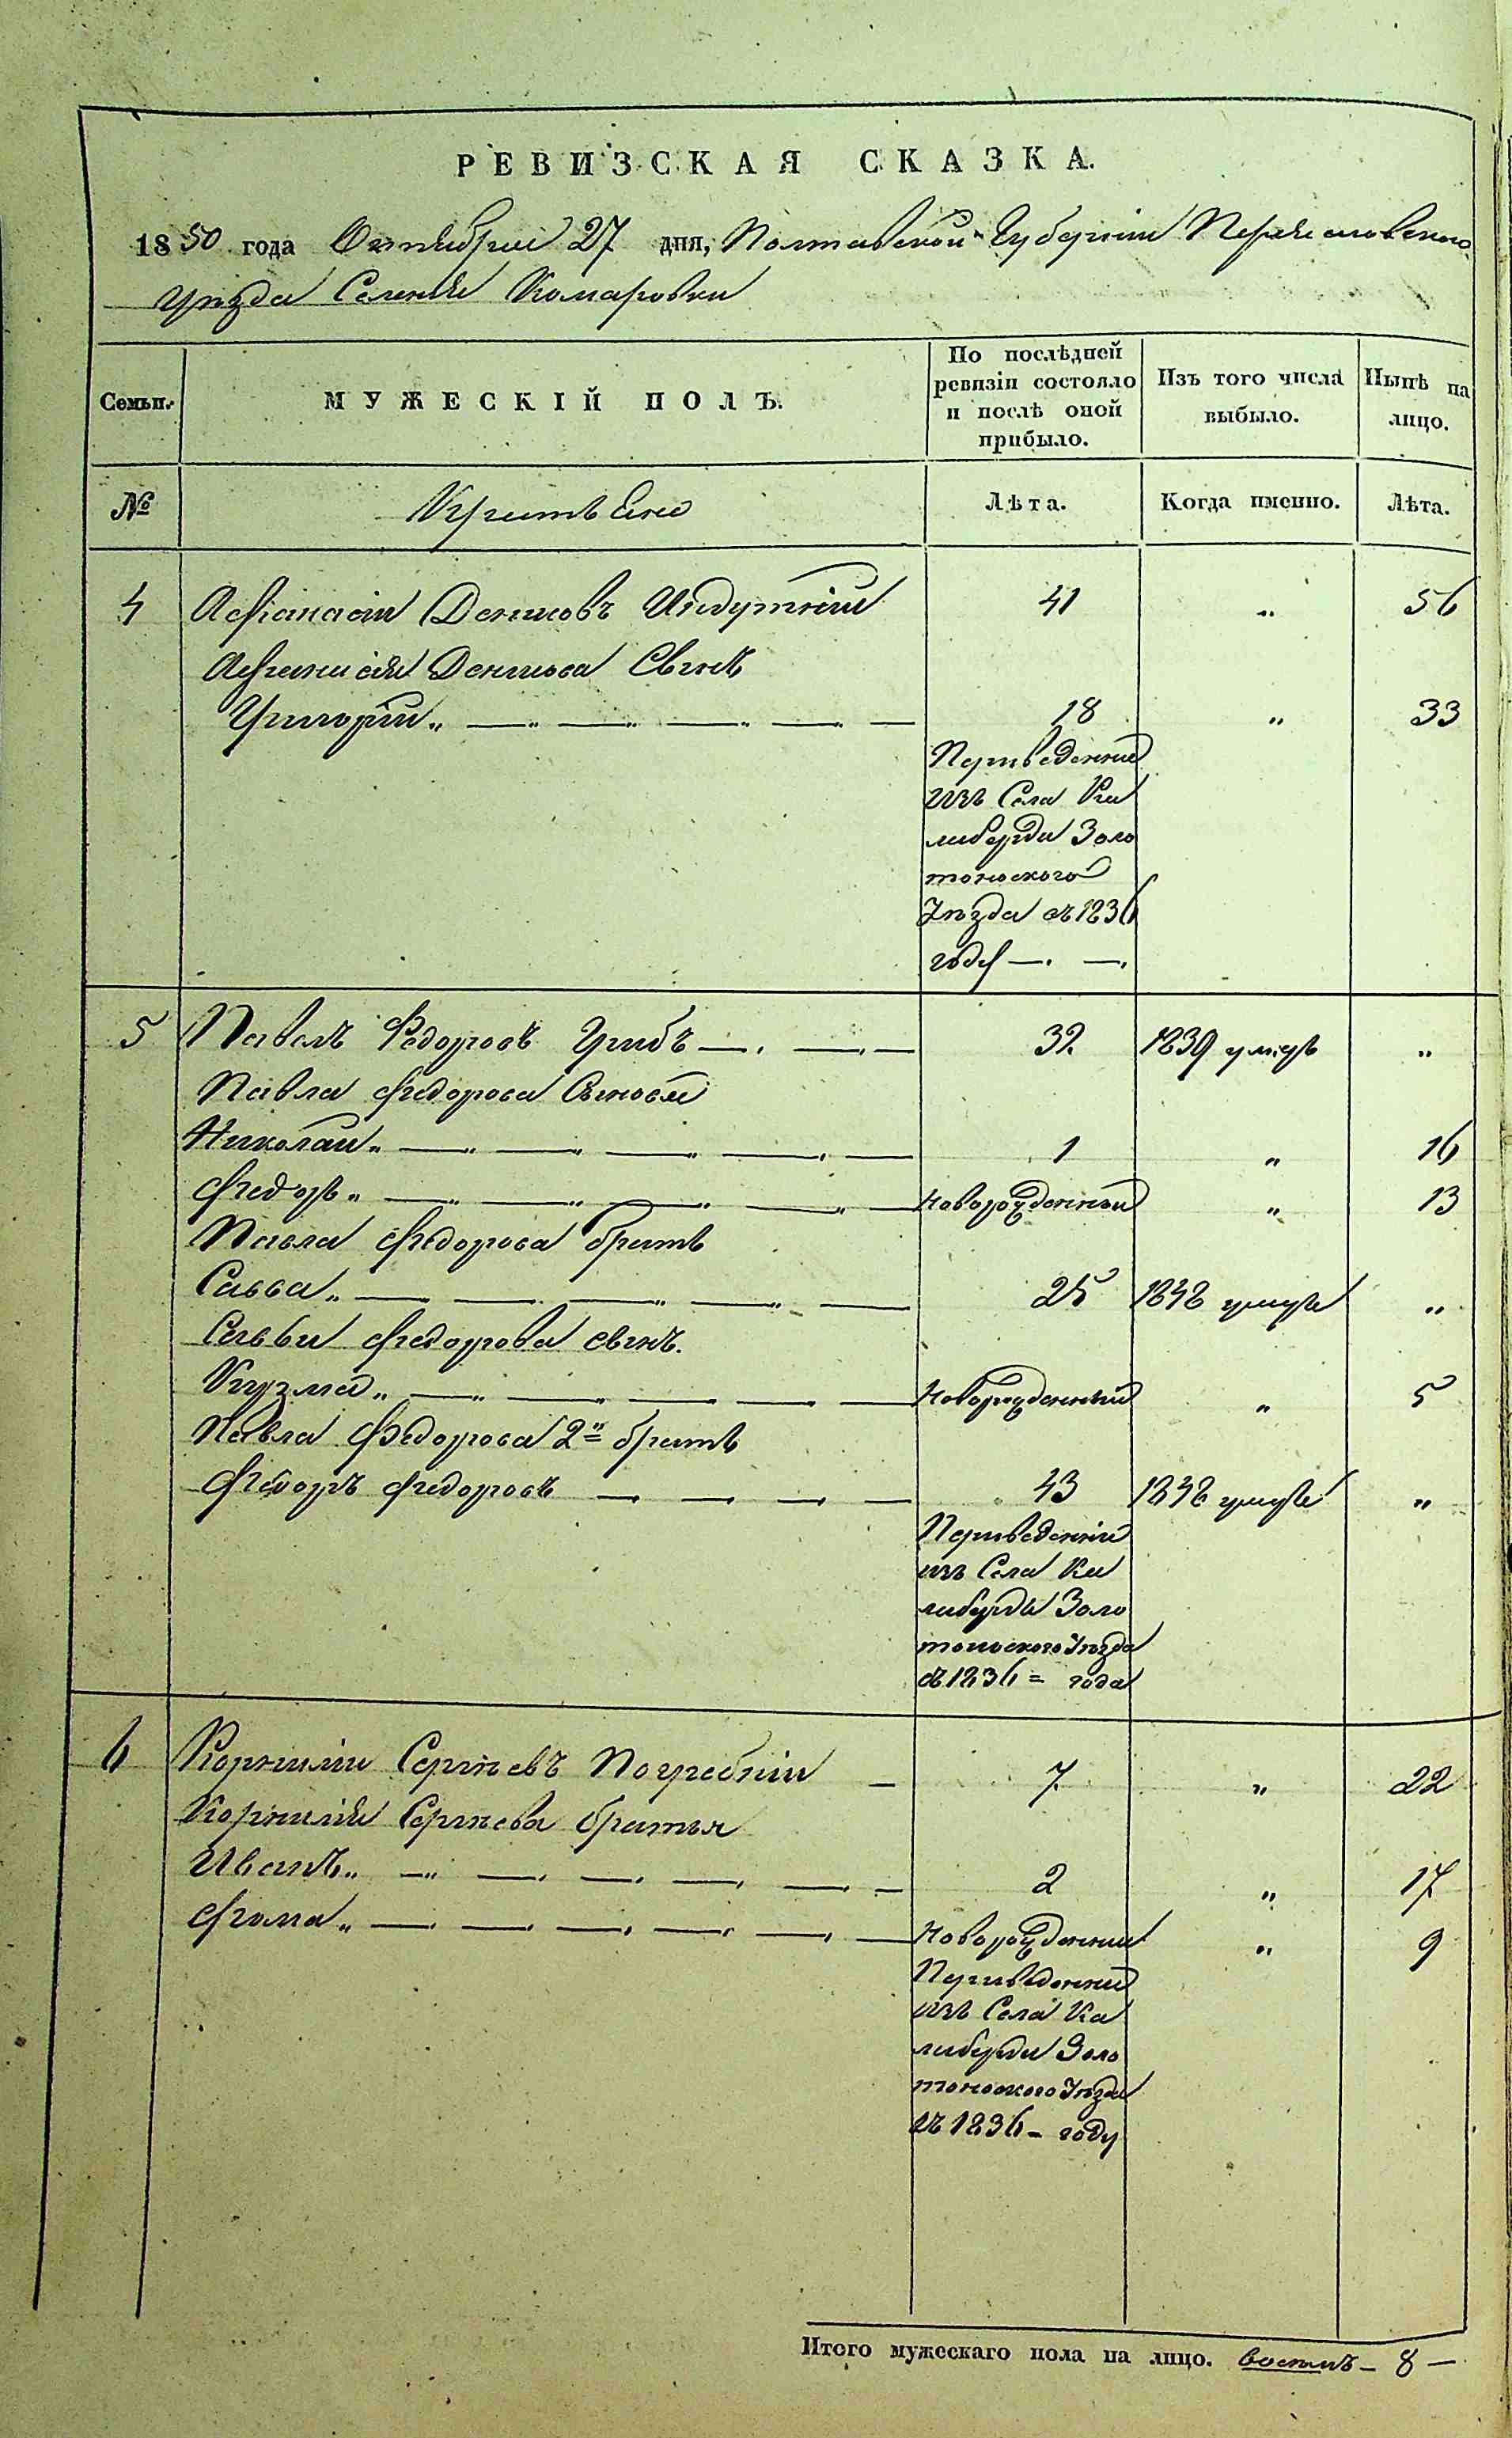 РЕВИЗСКАЯ СКАЗКА.
1850 года Октября 27 дня, Полтавской Губернии Переяславского
Уѣзда Селения Комаровки
Семьи. МУЖЕСКІЙ ПОЛЪ. По послѣдней ревизіи состояло и послѣ оной прибыло. Изъ того числа выбыло. Нынѣ на лицо.
№ Крестьяне Лѣта. Когда именно. Лѣта.
4 Афанасій Денисовъ 41 " 56
Афанасія Денисова Сынъ
Григорій " 18 " 33
Переведенни
изъ Села Ка
либерди Золо
тоноского
Уѣзда съ 1836
году
5 Павелъ Федоровъ Грибъ 32 1839 умеръ "
Павла Федорова Сыновья
Николай " 1 " 16
Федоръ " Новорожденный " 13
Павла Федорова братъ
Савва " 25 1848 умеръ "
Саввы Федорова сынъ.
Кузма " Новорожденный " 5
Павла Федорова 2й братъ
Федоръ Федоровъ 43 1848 умеръ "
Переведенни
изъ Села Ка
либерды Золо
тоноского Уѣзда
съ 1836 = года
6 Корнилій Сергѣевъ Погребній 7 " 22
Корнилія Сергѣева братья
Иванъ " 2 " 17
Фома " Новорожденний " 9
Переведенни
изъ Села Ка
либерди Золо
тоноского Уѣзда
съ 1836 - году
Итого мужескаго пола на лицо. восемъ - 8 -